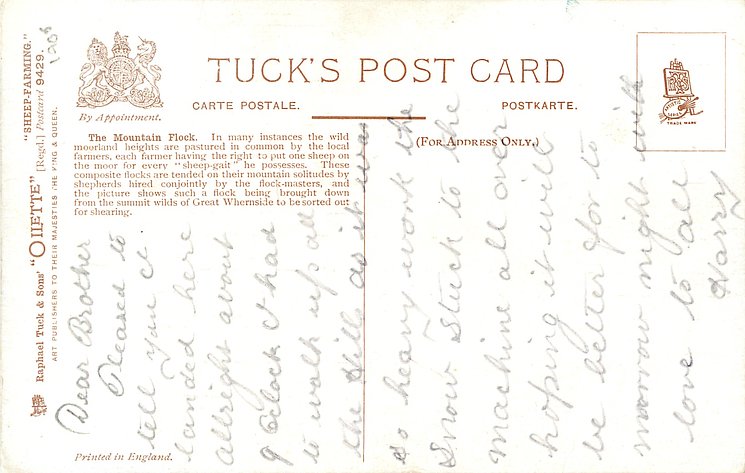 "SHEEP-FARMING."
Raphael Tuck & Sons' "OILETTE" [Regd.] Postcard 9429.
ART PUBLISHERS TO THEIR MAJESTIES THE KING & QUEEN.
1908
By Appointment.
TUCK'S POST CARD
CARTE POSTALE.
POSTKARTE.
(FOR ADDRESS ONLY.)
TRADE MARK
The Mountain Flock. In many instances the wild
moorland heights are pastured in common by the local
farmers, each farmer having the right to put one sheep on
the moor for every "sheep-gait" he possesses. These
composite flocks are tended on their mountain solitudes by
shepherds hired conjointly by the flock-masters, and
the picture shows such a flock being brought down
from the summit wilds of Great Whernside to be sorted out
for shearing.
Dear Brother
Pleased to
tell you I
landed here
allright about
9 Oclock I had
to walk up all
the hills as it was
so heavy work the
snow stuck to the
machine all over
hoping it will
be better for to
morrow night with
love to all
Harry
Printed in England.